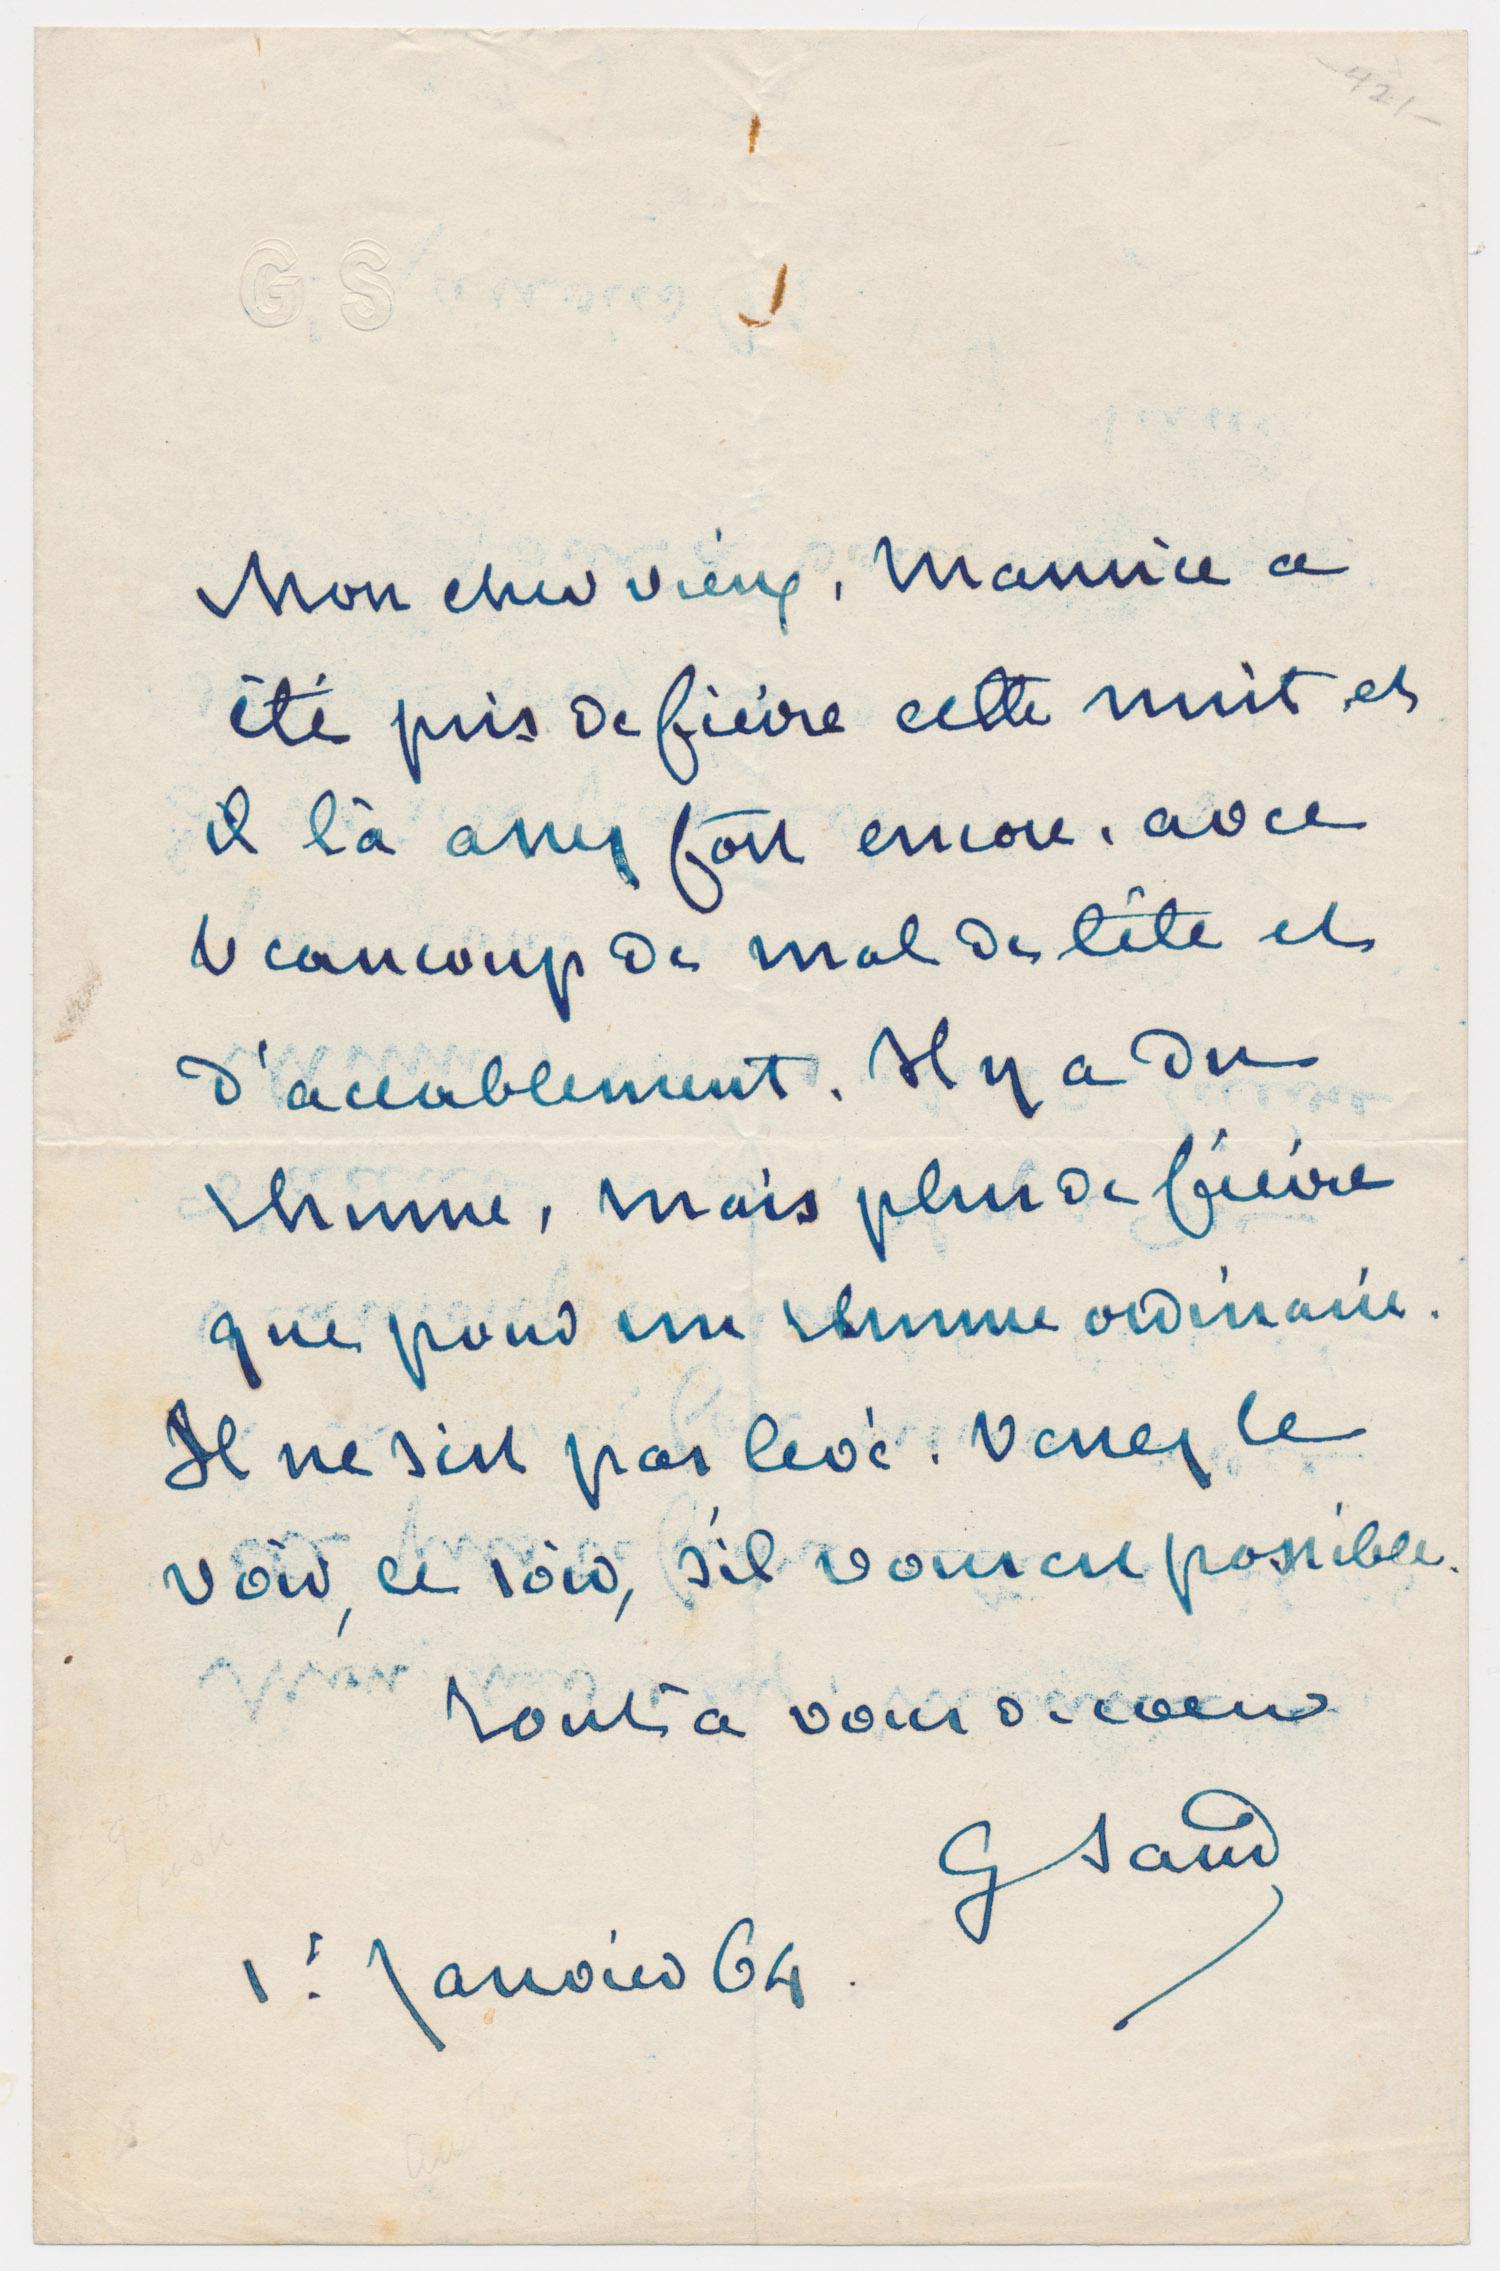 421-
G S
Mon cher vieux, Maurice a
été pris de fièvre cette nuit et
il l'a assez fort encore, avec
beaucoup de mal de tête et
d'accablement. Il y a du
rhume, mais plus de fièvre
que pour un rhume ordinaire.
Il ne s'est pas levé. Venez le
voir, ce soir, s'il vous est possible.
Tout à vous de cœur
G Sand
1er Janvier 64.